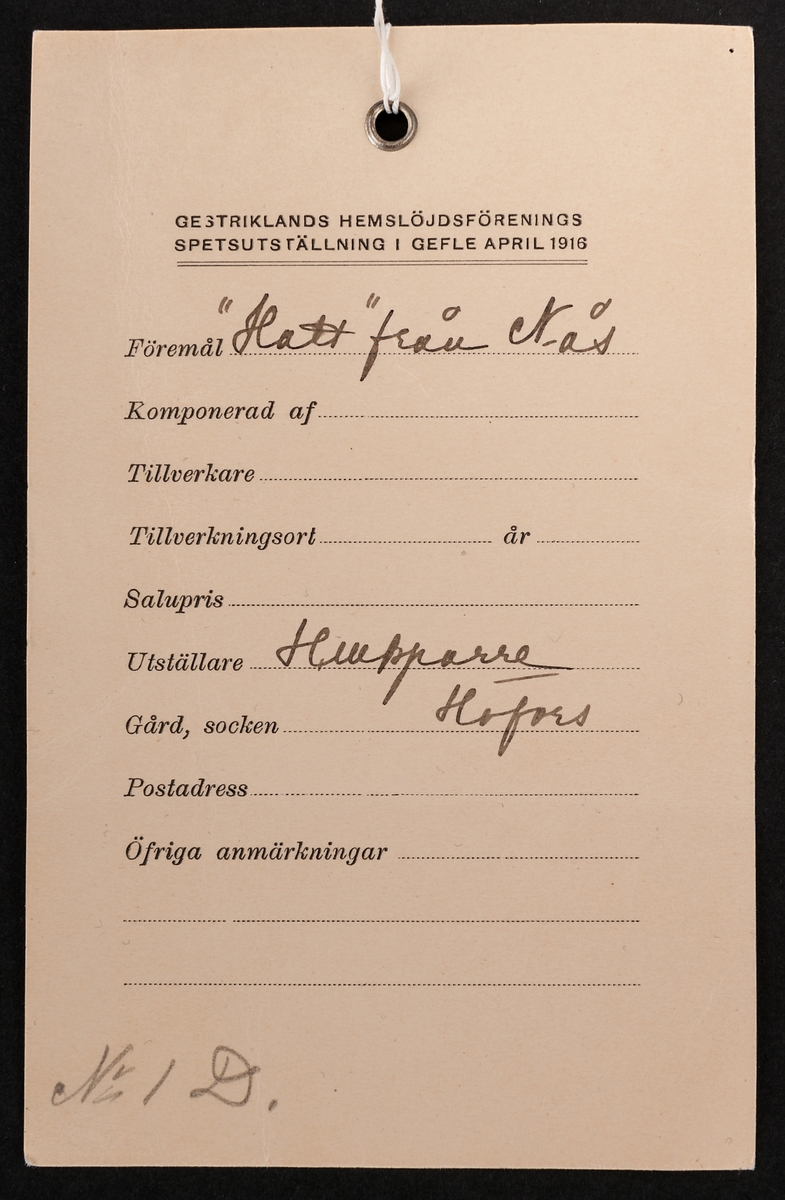 GESTRIKLANDS HEMSLÖJDSFÖRENINGS
SPETSUTSTÄLLNING I GEFLE APRIL 1916
Föremål "Hatt" från Nås
Komponerad af
Tillverkare
Tillverkningsort år
Salupris
Utställare
Gård, socken Hofors
Postadress
Öfriga anmärkningar
No 1 D.